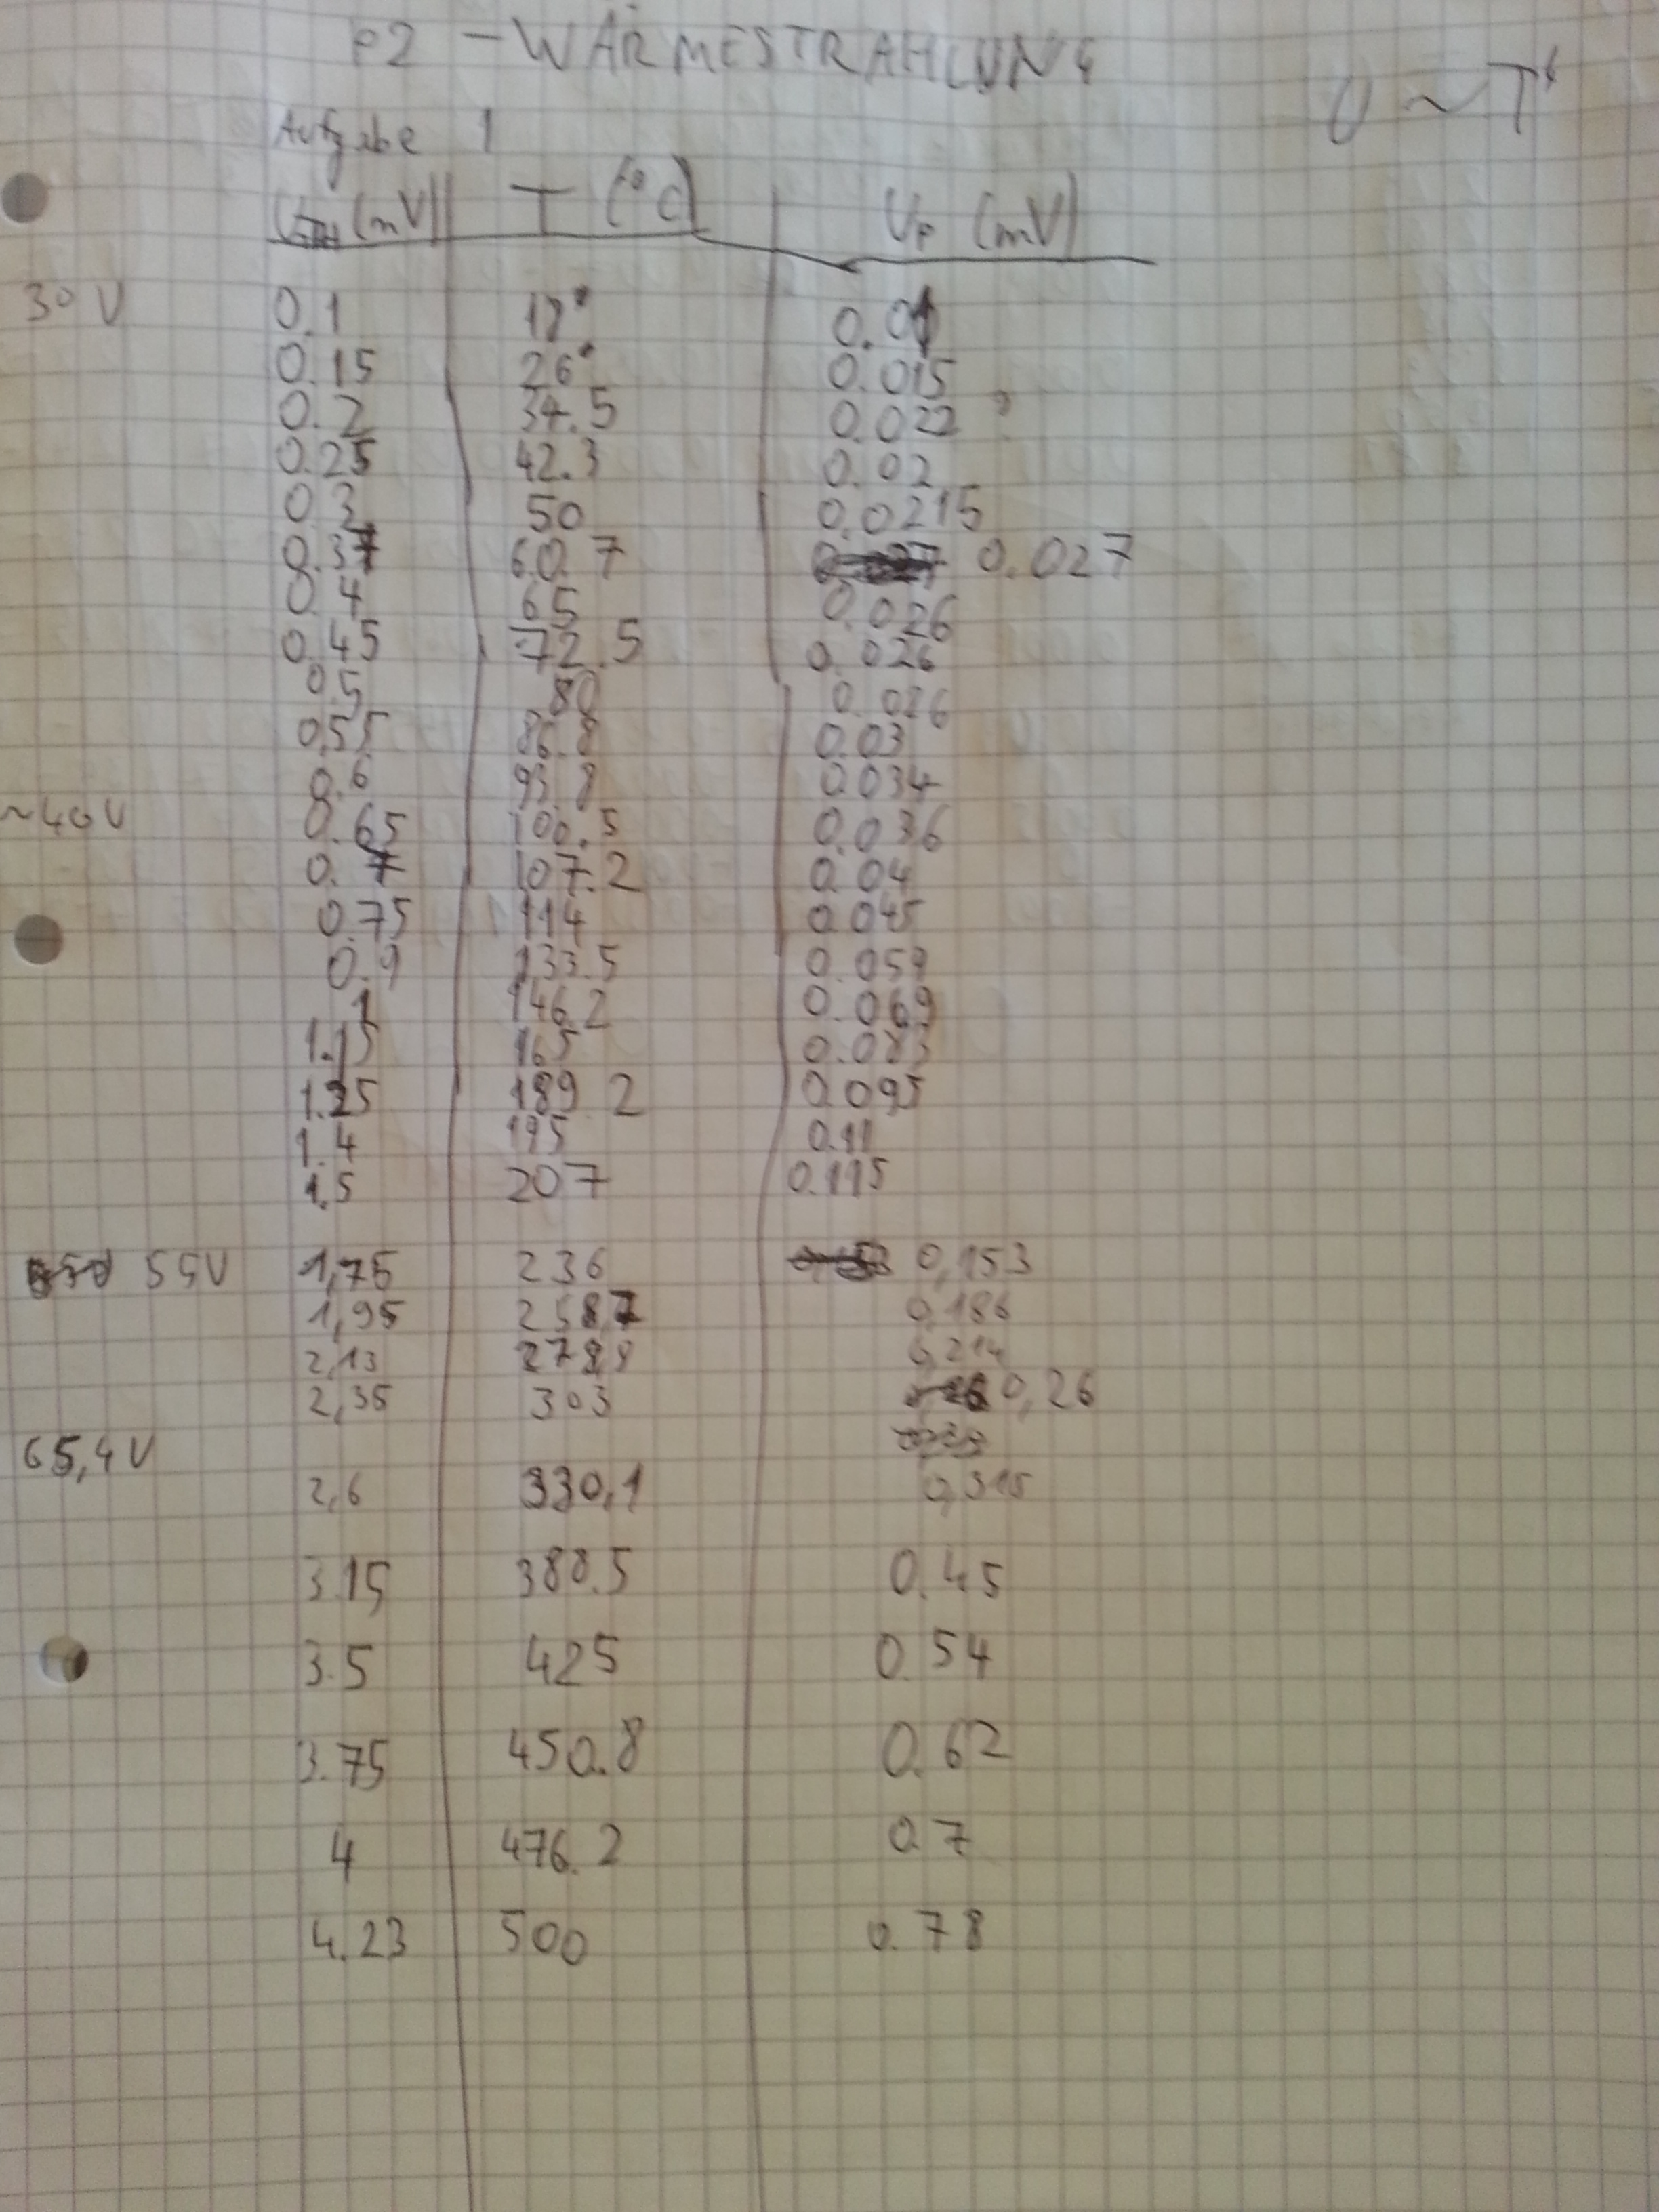 P2 - WÄRMESTRAHLUNG
U ~ T⁴
Aufgabe 1
U_TH (mV) T (°C) U_P (mV)
30 V 0.1 18° 0.01
0.15 26° 0.015
0.2 34.5 0.022 ?
0.25 42.3 0.02
0.3 50 0.0215
0.37 60.7 0.027
0.4 65 0.026
0.45 72.5 0.026
0.5 80 0.026
0.55 86.8 0.03
0.6 93.8 0.034
~40V 0.65 100.5 0.036
0.7 107.2 0.04
0.75 114 0.045
0.9 133.5 0.059
1 146.2 0.069
1.15 165 0.083
1.25 189.2 0.095
1.4 195 0.11
1.5 207 0.115
55V 1,75 236 0,153
1,95 258,7 0,186
2,13 278,9 0,214
2,35 303 0,26
65,4 V
2,6 330,1 0,315
3.15 388.5 0.45
3.5 425 0.54
3.75 450.8 0.62
4 476.2 0.7
4.23 500 0.78